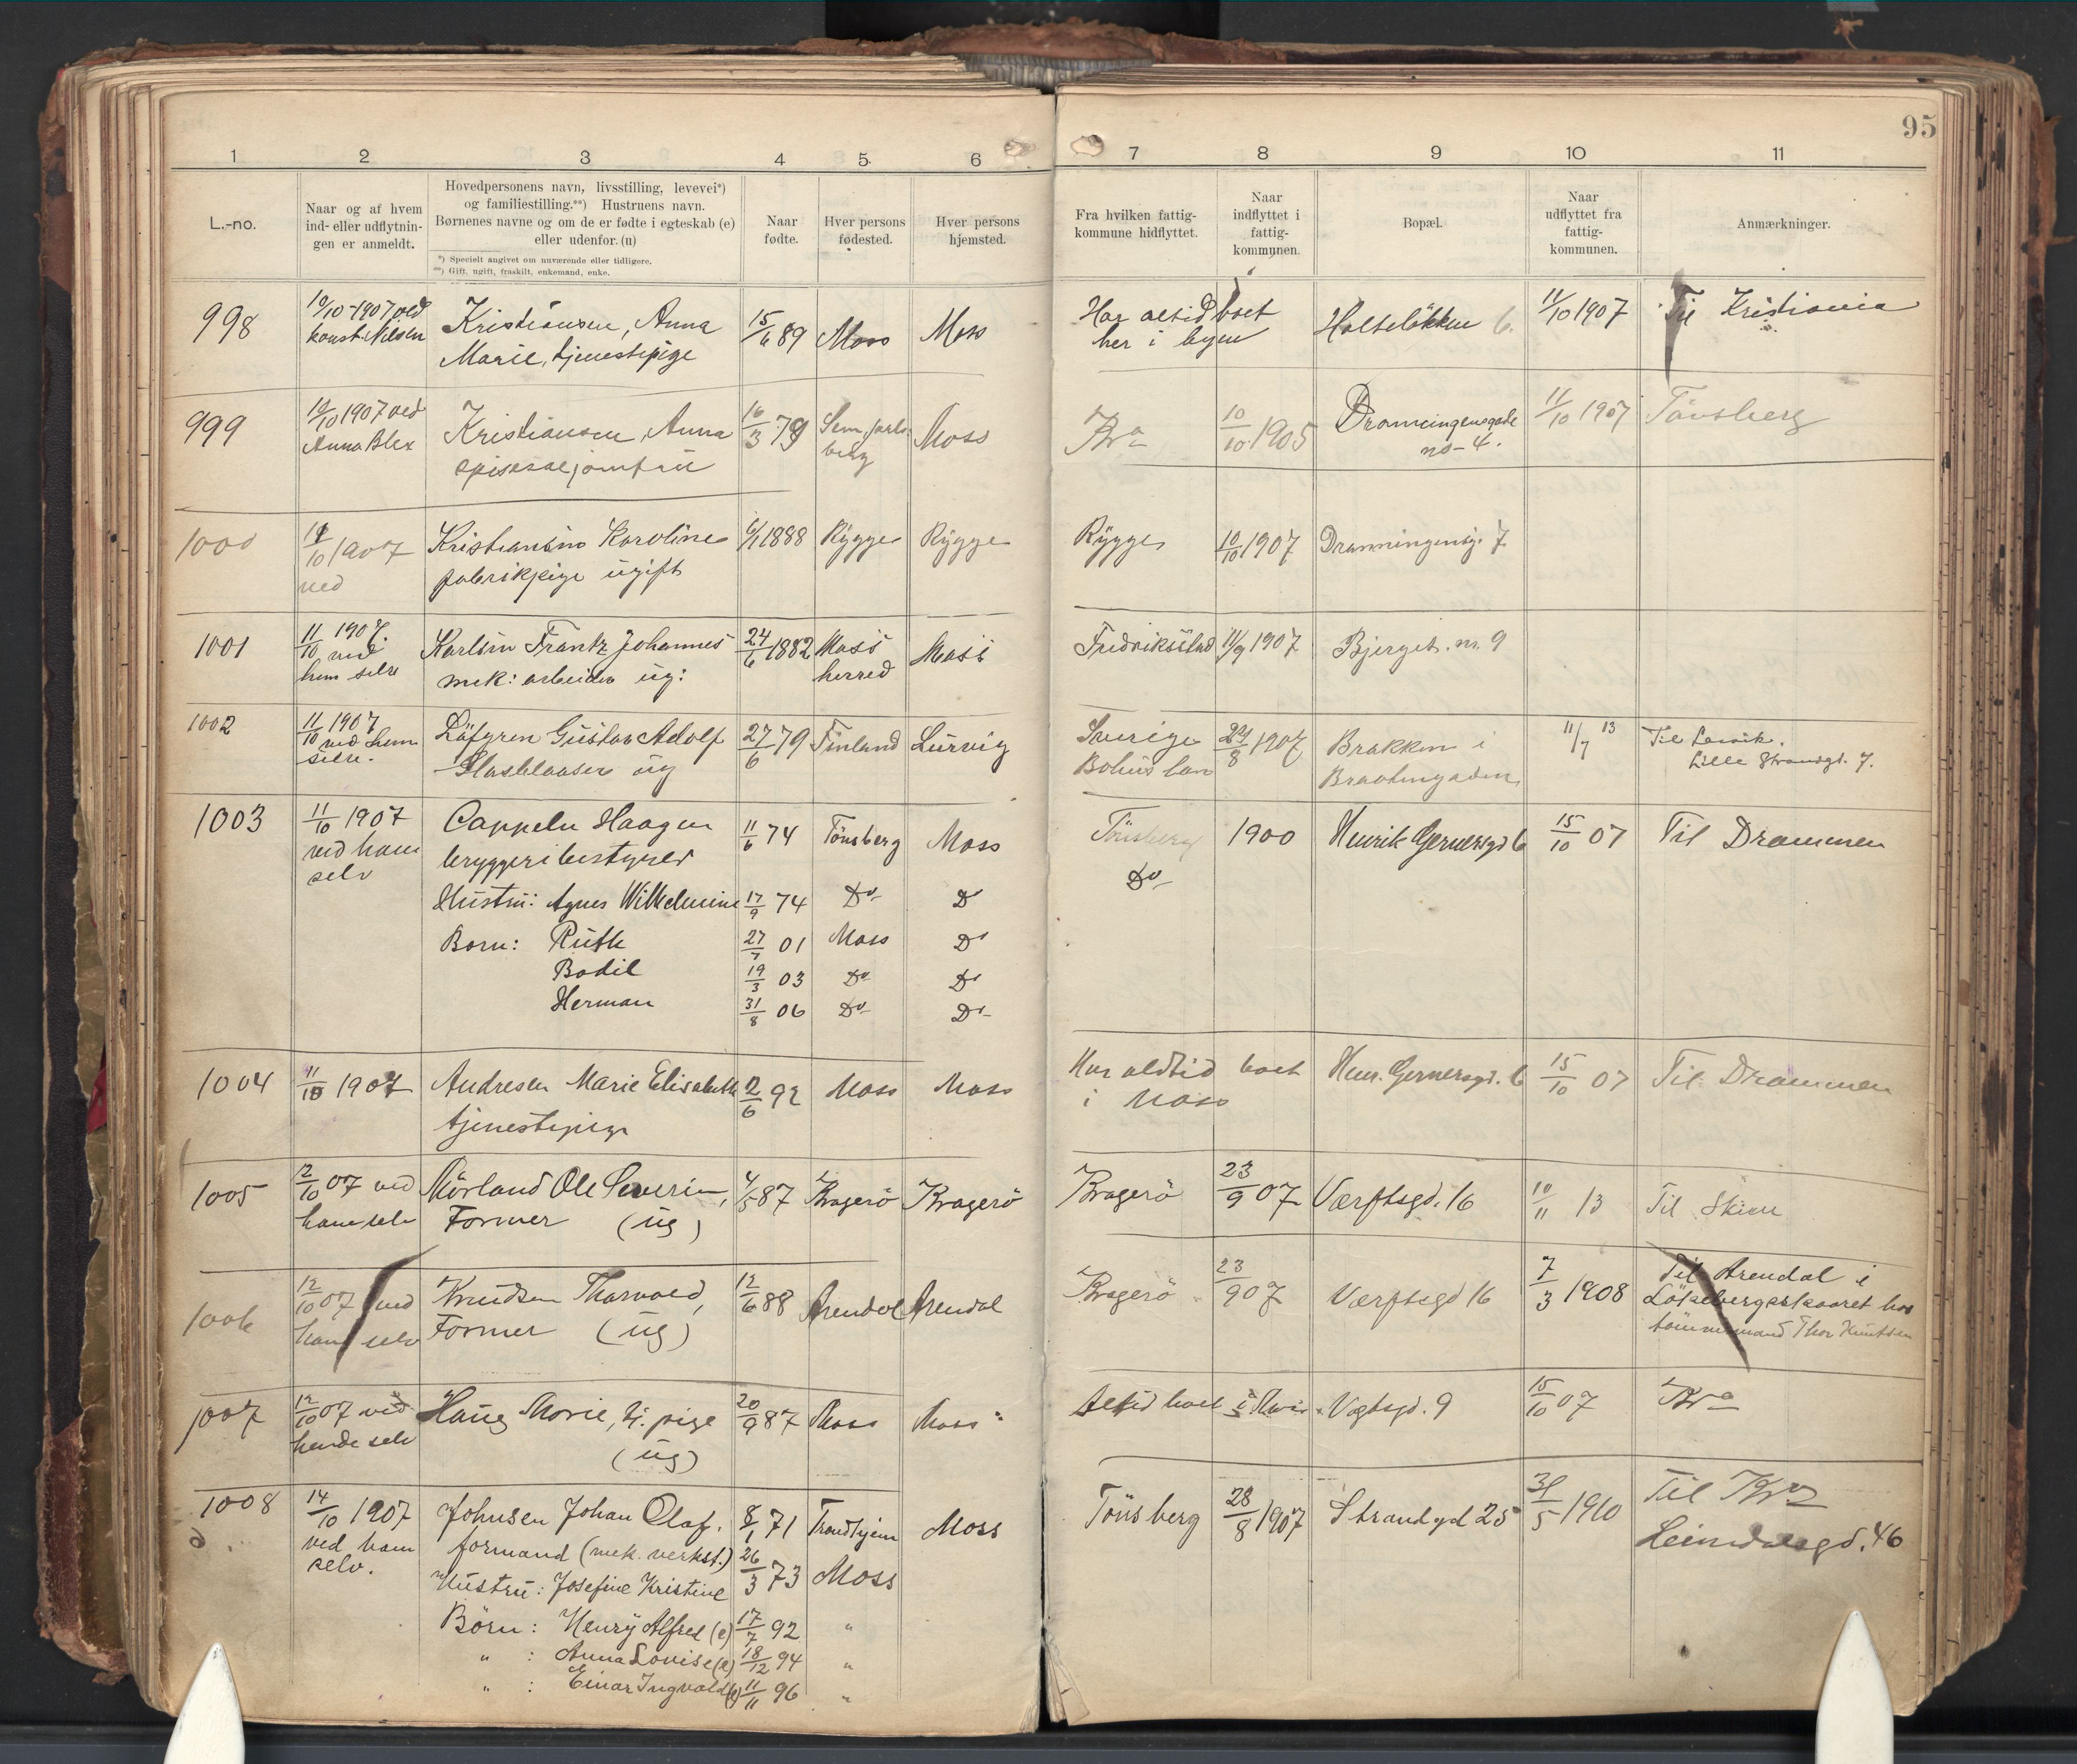 95
1 2 3 4 5. 6 7 8 9 10 11
L.-no.
Naar og af hvem
ind- eller udflytnin-
gen er anmeldt.
Hovedpersonens navn, livsstilling, levevei*)
og familiestilling.**) Hustruens navn.
Børnenes navne og om de er fødte i egteskab (e)
eller udenfor. (u)
*) Specielt angivet om nuværende eller tidligere.
**) Gift, ugift, fraskilt, enkemand, enke.
Naar
fødte.
Hver persons
fødested.
Hver persons
hjemsted.
Fra hvilken fattig-
kommune hidflyttet.
Naar
indflyttet i
fattig-
kommunen.
Bopæl.
Naar
udflyttet fra
fattig-
kommunen.
Anmærkninger.
998 10/10-1907 ved Kristiansen, Anna 15/6 89 Moss Moss Har altid boet Holteløkken 6. 11/10 1907 Til Kristiania
konst. Nilsen Marie, tjenestepige her i byen
999 10/10 1907 ved Kristiansen, Anna 16/3 79 Sem, Jarls- Moss Kra 10/10 1905 Dronningensgade 11/10 1907 Tønsberg
Anna Blex berg no- 4.
1000 11/10 1907 Kristiansen Karoline 6/1 1888 Rygge Rygge Rygge 10/10 1907 Dronningensg. 7
ved fabrikpige ugift
1001 11/10 1907. Karlsen Frantz Johannes 24/6 1882 Moss Moss Fredriksstad 11/9 1907 Bjerget. nr. 9
ved mek: arbeider ug: herred
ham selv
1002 11/10 1907 Löfgren Gustav Adolf 27/6 79 Finland Lurvig Sverige 29/8 1907 Brakken i 11/7 13 Til Larvik.
ved ham Glasblaaser ug Bohus lan Lille Strandgt. 7.
selv.
1003 11/10 1907 Cappelen Haagen 11/6 74 Tønsberg Moss Tønsberg 1900 Henrik Gernersgd 6 15/10 07 Til Drammen
ved ham bryggeribestyrer Do
selv
Hustru: Agnes Wilhelmine 17/9 74 Do Do
Born: Ruth 27/7 01 Moss Do
Bodil 19/3 03 Do Do
Herman 31/8 06 Do Do
1004 11/10 1907 Andresen Marie Elisabeth 2/6 92 Moss Moss Har aldtid boet Henr. Gernersgd. 6 15/10 07 Til Drammen
tjenestepige i Moss
1005 12/10 07 ved Mörland Ole Severin, 4/5 87 Kragerö Kragerö Kragerö 23/9 07 Værftsgd. 16 10/11 13 Til Skien
ham selv Former (ug)
1006 12/10 07 ved Knudsen Thorvald, 12/6 88 Arendal Arendal Kragerö 23/9 07 Værftsgd 16 7/3 1908 Til Arendal i
ham selv Former (ug) tømmermand Thor Knutsen
1007 12/10 07 ved Haug Marie, tj. pige 20/9 87 Moss Moss Altid boet i Moss Vogtsgd. 9 15/10 07 Kra
hende selv (ug)
1008 14/10 1907 Johnsen Johan Olaf. 8/1 71 Trondhjem Moss Tönsberg 28/8 1907 Strandgd 25 31/5 1910 Til Kra
ved ham formand (mek. verkst.) Heimdalsgd. 46
selv. Hustru: Josefine Kristine 26/3 73 Moss
Börn: Henry Alfred (e) 17/7 92 "
" : Anna Lovise (e) 18/12 94 "
" : Einar Ingvald (e) 11/11 96 "